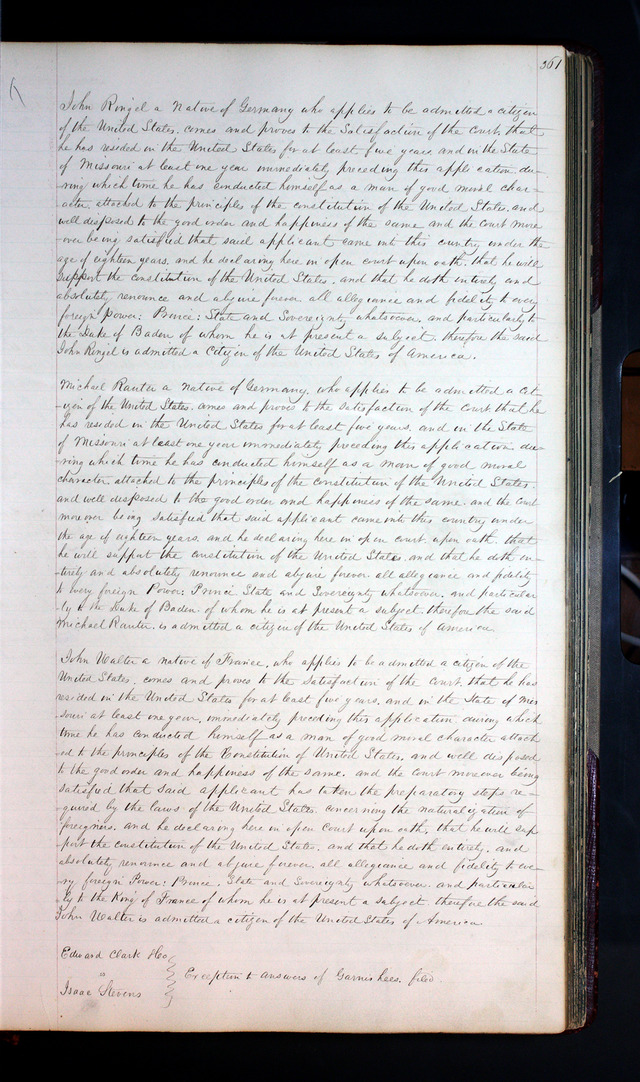 361
John Ringel a Native of Germany who applies to be admitted a citizen
of the United States. comes and proves to the Satisfaction of the Court, that
he has resided in the United States for at least five years, and in the State
of Missouri at least one year immediately preceding this application. du-
ring which time he has conducted himself as a man of good moral char-
acter, attached to the principles of the constitution of the United States, and
well disposed to the good order and happiness of the same and the Court more
over being satisfied that said applicant came into this country under the
age of eighteen years, and he declaring here in open court upon oath, that he will
Support the constitution of the United States. and that he doth entirely and
absolutely renounce and abjure forever all allegiance and fidelity to every
foreign Power: Prince: State and Sovereignty whatsoever, and particularly to
the Duke of Baden of whom he is at present a subject. therefore the said
John Ringel is admitted a Citizen of the United States of America.
Michael Rauter a native of Germany, who applies to be admitted a cit-
-izen of the United States. comes and proves to the satisfaction of the Court, that he
has resided in the United States for at least five years, and in the State
of Missouri at least one year immediately preceding this application du-
ring which time he has conducted himself as a man of good moral
character, attached to the principles of the constitution of the United States.
and well disposed to the good order and happiness of the same. and the Court
moreover being satisfied that said applicant came into this country under
the age of eighteen years. and he declaring here in open court, upon oath, that
he will support the constitution of the United States. and that he doth en-
-tirely and absolutely renounce and abjure forever all allegiance and fidelity
to every foreign Power: Prince State and Sovereignty whatsoever. and particular
-ly to the Duke of Baden, of whom he is at present a subject. therefore the said
Michael Rauter. is admitted a citizen of the United States of America
John Walter a native of France, who applies to be admitted a citizen of the
United States. comes and proves to the satisfaction of the Court, that he has
resided in the United States for at least five years, and in the State of Mis
souri at least one year. immediately preceding this application during which
time he has conducted himself as a man of good moral character attach
-ed to the principles of the Constitution of United States, and well disposed
to the good order and happiness of the same. and the court moreover being
satisfied that said applicant has taken the preparatory steps re-
quired by the laws of the United States. concerning the naturalization of
foreigners. and he declaring here in open Court upon oath, that he will sup
port the constitution of the United States. and that he doth entirely. and
absolutely renounce and abjure forever. all allegiance and fidelity to eve-
ry foreign Power: Prince. State and Sovereignty whatsoever. and particular
-ly to the King of France of whom he is at present a subject. therefore the said
John Walter is admitted a citizen of the United States of America
Edward Clark &co
vs
Exception to answers of Garnishees. filed.
Isaac Stevens